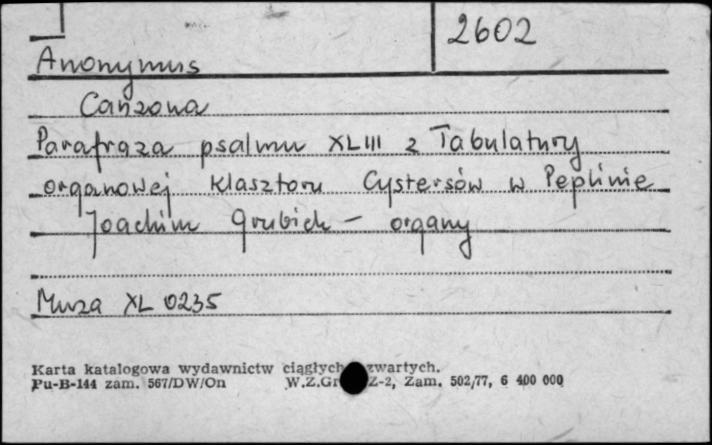 2602
Anonymus
Canzona
Parafraza psalmu XLIII z Tabulatury
organowej Klasztoru Cystersów w Peplinie
Joachim Grubich – organy
Muza XL 0235
Karta katalogowa wydawnictw ciągłych zwartych.
Pu-B-144 zam. 567/DW/On W.Z.Gr Z-2, Zam. 502/77, 6 400 000